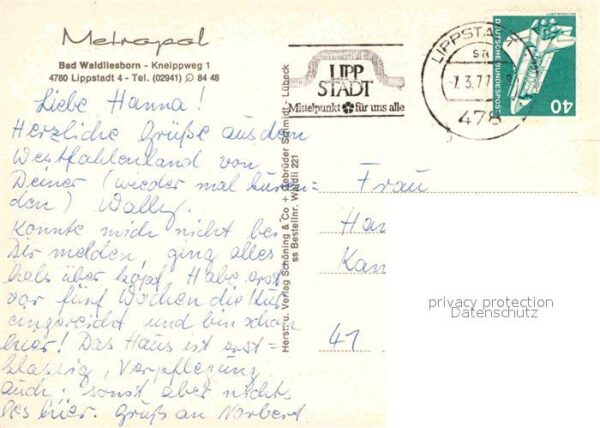 Metropol
Bad Waldliesborn - Kneippweg 1
4780 Lippstadt 4 - Tel. (02941) 8448
Liebe Hanna!
Herzliche Grüße aus dem
Westfahlenland von
Deiner (wieder mal kuren=
den) Wally.
Konnte mich nicht bei
Dir melden, ging alles
hals über kopf. Habe erst
vor fünf Wochen die Kur
eingereicht und bin schon
hier! Das Haus ist erst=
klassig, Verpflegung
auch. sonst aber nichts
los hier. Gruß an Norbert
Herst. u. Verlag Schöning & Co + Gebrüder Schmidt, Lübeck
ss Bestellnr. Waldli 221
LIPP
STADT
Mittelpunkt für uns alle
LIPPSTADT
sa
-7.3.77
478
DEUTSCHE BUNDESPOST
40
Frau
Han
Kan
41
privacy protection
Datenschutz